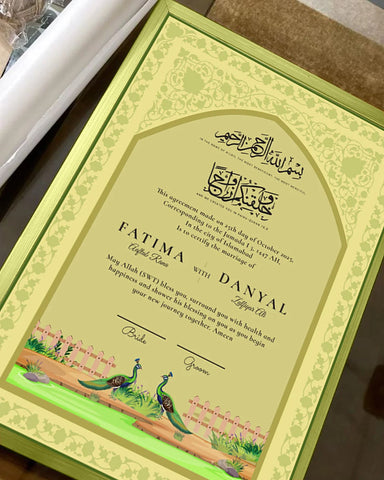 بسم الله الرحمن الرحيم
IN THE NAME OF ALLAH, THE MOST BENEFICENT, THE MOST MERCIFUL
وخلقناكم أزواجا
AND WE CREATED YOU IN PAIRS
This agreement made on 25th day of October 2025,
Corresponding to the Jumada I 3, 1447 AH,
In the city of Islamabad
Is to certify the marriage of
FATIMA WITH DANYAL
May Allah (SWT) bless you, surround you with health and
happiness and shower his blessing on you as you begin
your new journey together. Ameen
Bride
Groom